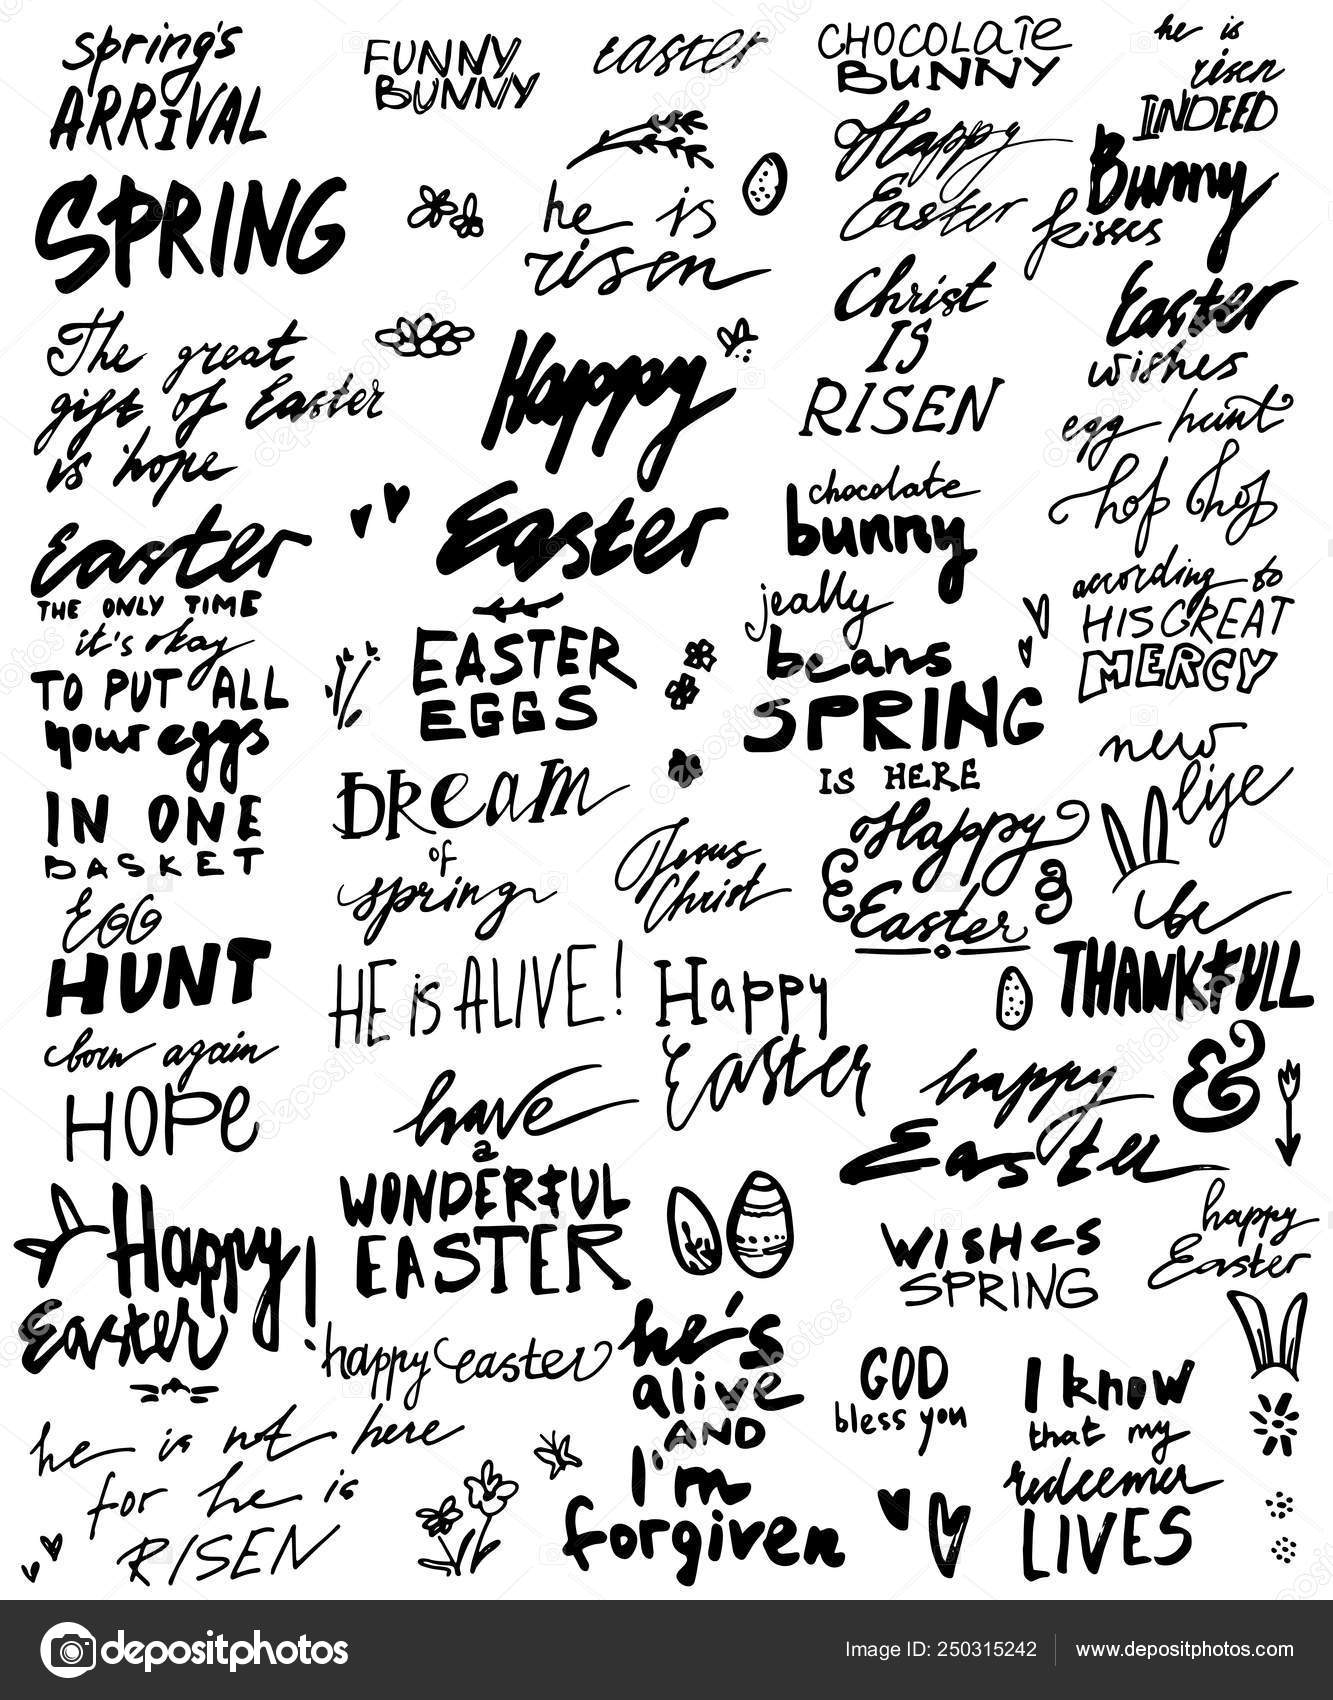 spring's
ARRIVAL
SPRING
The great
gift of Easter
is hope
Easter
THE ONLY TIME
it's okay
TO PUT ALL
your eggs
IN ONE
BASKET
EGG
HUNT
born again
HOPe
Happy!
Easter
he is not here
for he is
RISEN
FUNNY
BUNNY
easter
he is
risen
Happy
Easter
EASTER
EGGS
DReam
of
spring
HE iS ALIVE!
have
a
WONDERFUL
EASTER
happy easter
Jesus
Christ
Happy
Easter
he's
alive
AND
I'm
forgiven
CHOCOLATe
BUNNY
Happy
Easter
Christ
IS
RISEN
chocolate
bunny
jeally
beans
SPRING
IS HERE
Happy
Easter
happy
Easter
WISHeS
SPRING
GOD
bless you
he is
risen
INDEED
Bunny
kisses
Easter
wishes
egg hunt
hop hop
according to
HIS GREAT
MERCY
new
life
be
THANKFULL
&
happy
Easter
I know
that my
redeemer
LIVES
depositphotos
Image ID: 250315242
www.depositphotos.com